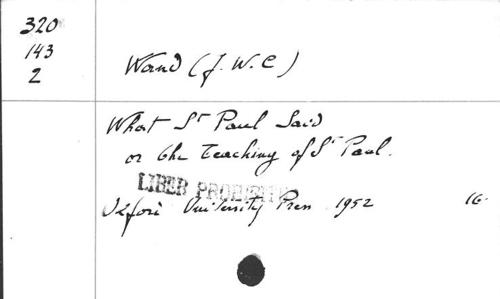 320
143
2
Wand (J. W. C)
What St Paul Said
or the Teaching of St Paul.
LIBER PROHIBITUS
Oxford University Press 1952 16